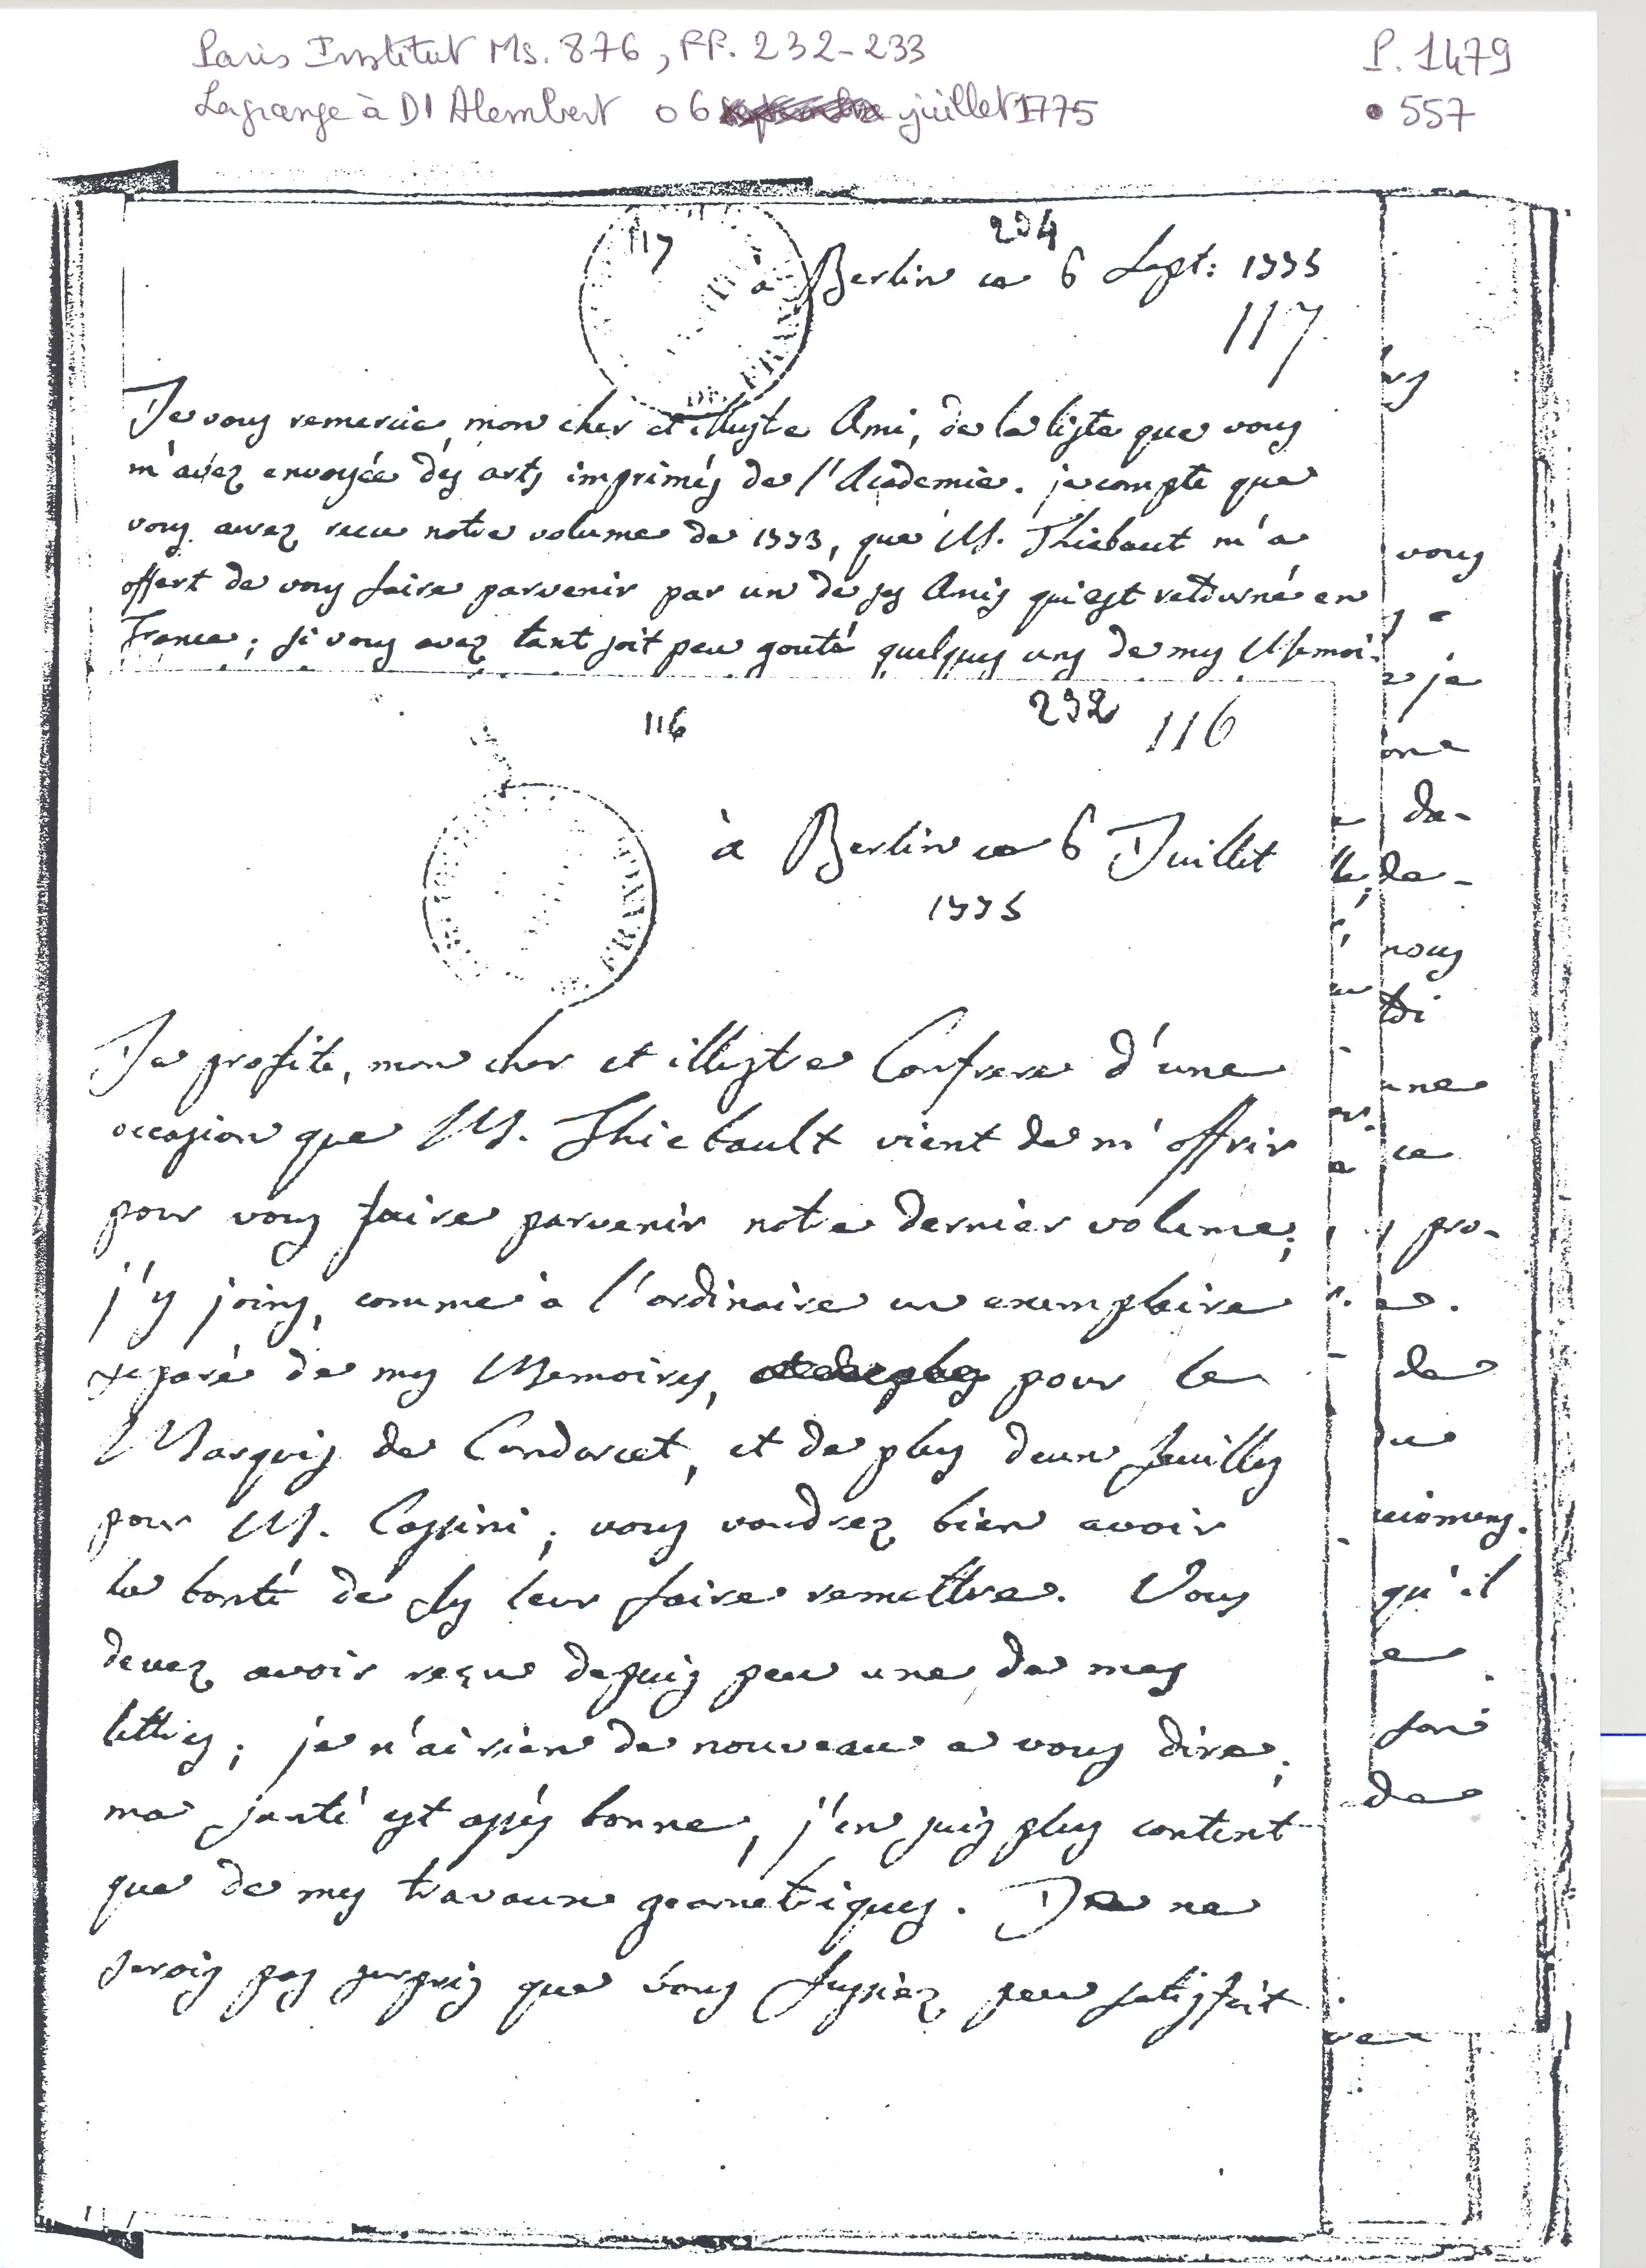 Paris Institut Ms. 876, FF. 232-233
P. 1479
Lagrange à D'Alembert 06 juillet 1775
557
117
234
à Berlin ce 6 Sept: 1775
117
Je vous remercie, mon cher et illustre Ami, de la liste que vous
m'avez envoyée des arts imprimés de l'Academie. je compte que
vous aurez recu notre volume de 1773, que M. Thiebaut m'a
offert de vous faire parvenir par un de ses Amis qui est retourné en
France; si vous avez tant soit peu gouté quelques uns de mes Memoi-
116
232
116
à Berlin ce 6 Juillet
1775
Je profite, mon cher et illustre Confrere d'une
occasion que M. Thiebault vient de m'offrir
pour vous faire parvenir notre dernier volume;
j'y joins, comme à l'ordinaire un exemplaire
separé de mes Memoires, pour le
Marquis de Condorcet, et de plus deux feuilles
pour M. Cassini; vous voudrez bien avoir
la bonté de les leur faire remettre. Vous
devez avoir reçu depuis peu une de mes
lettres; je n'ai rien de nouveau a vous dire;
ma santé est assés bonne, j'en suis plus content
que de mes travaux geometriques. Je ne
serois pas surpris que vous fussiez peu satisfait
vous
je
da-
de-
nous
une
ce
pro-
de
du
qu'il
de